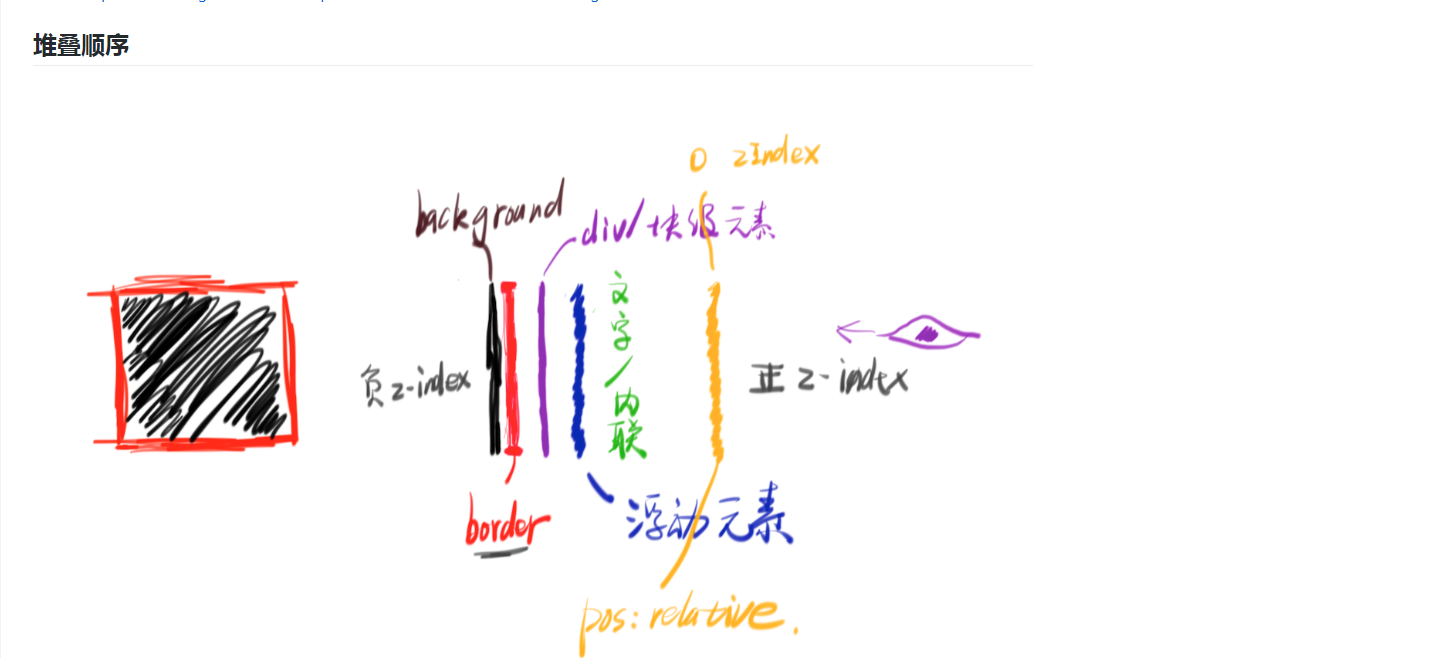 堆叠顺序
0 zIndex
background
div/块级元素
文字/内联
负z-index
正z-index
border
浮动元素
pos:relative.